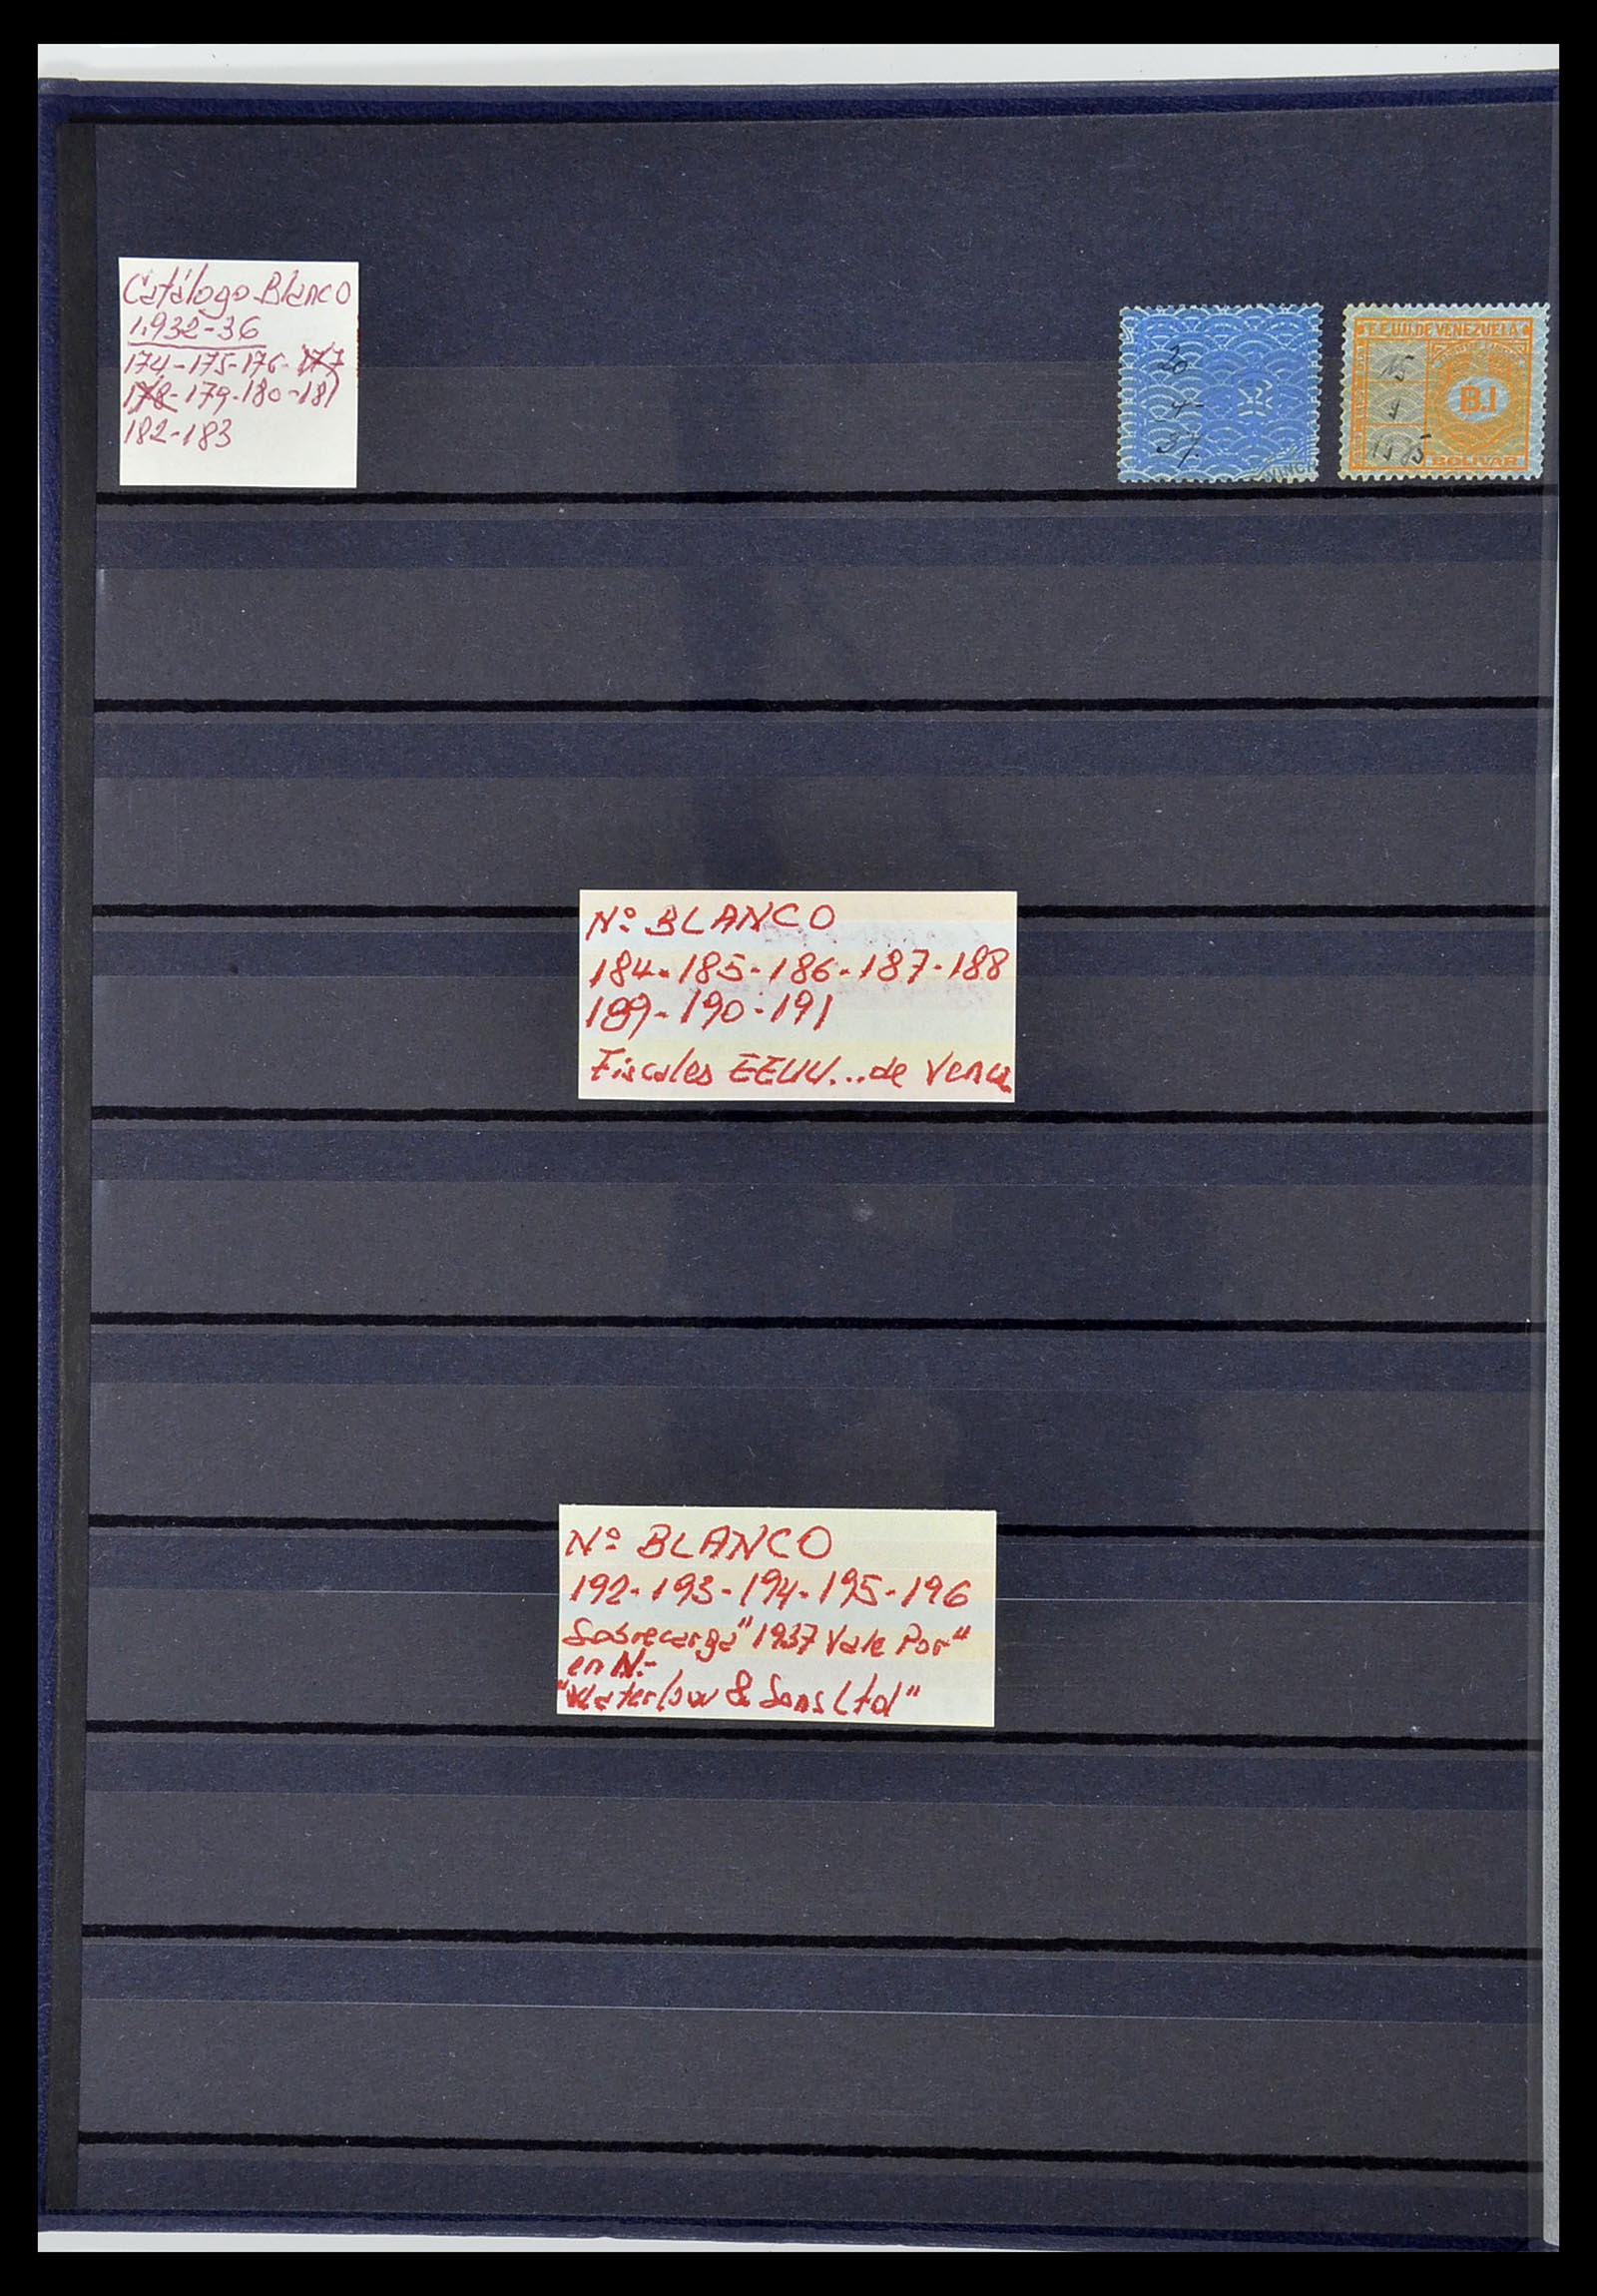 Catálogo Blanco
1.932-36
174-175-176-177
178-179-180-181
182-183
20
4
37
E.E.U.U. DE VENEZUELA
15
4
B.1
BOLIVAR
Nº BLANCO
184-185-186-187-188
189-190-191
Fiscales EEUU...de Venez
Nº BLANCO
192-193-194-195-196
Sobrecarga "1937 Vale Por"
en N.-
"Waterlow & Sons Ltd"